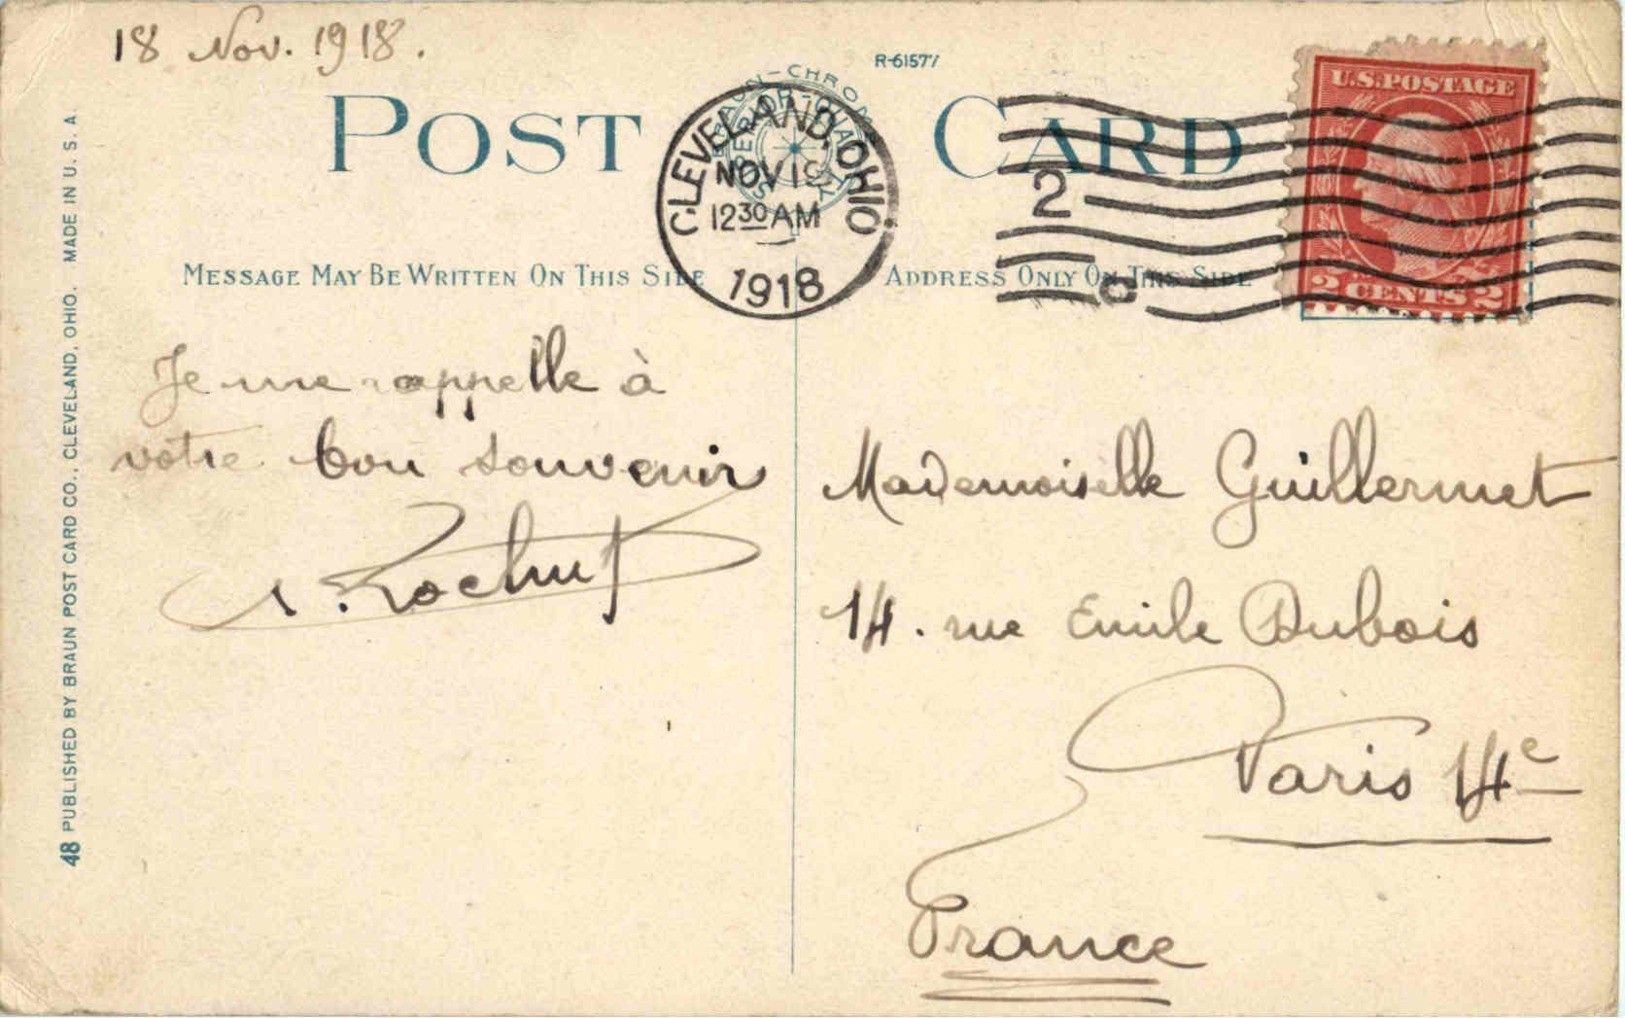 18 Nov. 1918.
R-61577
POST CARD
CLEVELAND, OHIO
NOV 19
12 30 AM
1918
2
U.S. POSTAGE
2 CENTS 2
MESSAGE MAY BE WRITTEN ON THIS SIDE
ADDRESS ONLY ON THIS SIDE
Je me rappelle à
votre bon souvenir
Rochut
Mademoiselle Guillermet
14. rue Emile Dubois
Paris 14e
France
48 PUBLISHED BY BRAUN POST CARD CO., CLEVELAND, OHIO. MADE IN U. S. A.